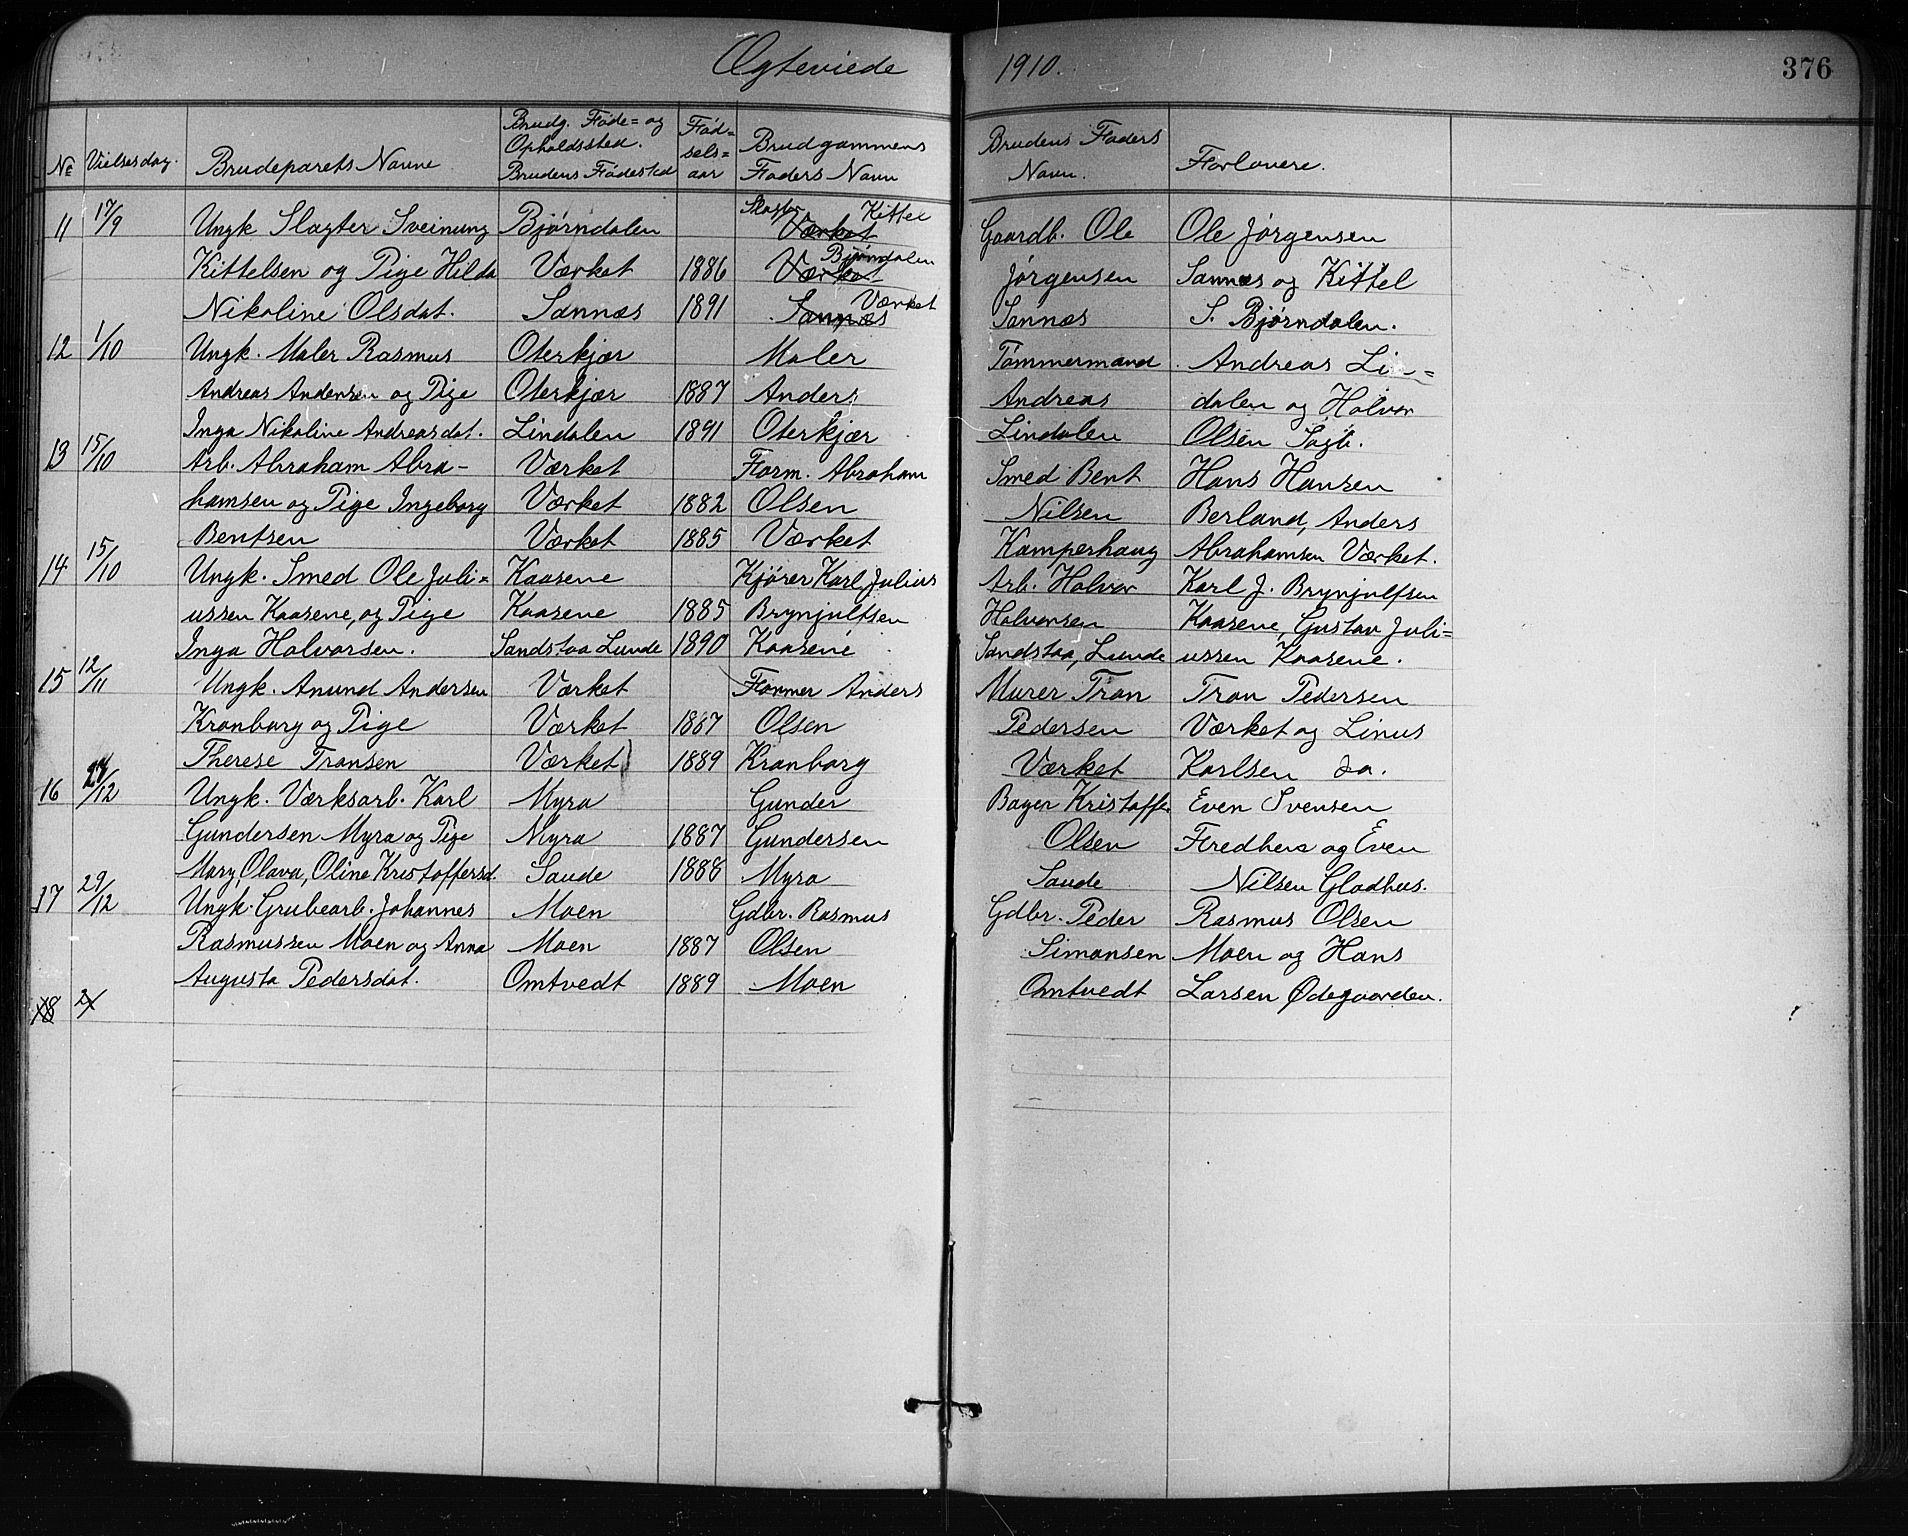 Ægteviede 1910. 376
№ Vielsesdag. Brudeparets Navne Brudg. Føde= og Opholdssted. Brudens Fødested Fød= sels= aar Brudgommens Faders Navn Brudens Faders Navn. Forlovere.
11 17/9 Ungk Slagter Sveinung Bjørndalen Slagter Kittel Værket Gaardb. Ole Ole Jørgensen
Kittelsen og Pige Hilda Værket 1886 Bjørndalen Værket Jørgensen Sannæs og Kittel
Nikoline Olsdat. Sannæs 1891 Værket Sannæs Sannæs S. Bjørndalen.
12 1/10 Ungk. Maler Rasmus Oterkjær Maler Tømmermand Andreas Lin=
Andreas Andersen og Pige Oterkjær 1887 Anders Andreas dalen og Halvor
Inga Nikoline Andreasdat. Lindalen 1891 Oterkjær Lindalen Olsen Sagb.
13 15/10 Arb. Abraham Abra- Værket Form. Abraham Smed Bent Hans Hansen
hamsen og Pige Ingeborg Værket 1882 Olsen Nilsen Berland, Anders
Bentsen Værket 1885 Værket Kamperhaug Abrahamsen Værket.
14 15/10 Ungk. Smed Ole Juli= Kaasene Kjører Karl Julius Arb. Halvor Karl J. Brynjulfsen
ussen Kaasene, og Pige Kaasene 1885 Brynjulfsen Halvorsen Kaasene, Gustav Juli=
Inga Halvorsen. Sandstaa Lunde 1890 Kaasene Sandstaa, Lunde ussen Kaasene.
15 12/11 Ungk. Anund Andersen Værket Former Anders Murer Tron Tron Pedersen
Kronborg og Pige Værket 1887 Olsen Pedersen Værket og Linus
Therese Tronsen Værket 1889 Kronborg Værket Karlsen do.
16 27/12 Ungk. Værksarb. Karl Myra Gunder Bager Kristoffer Even Svensen
Gundersen Myra og Pige Myra 1887 Gundersen Olsen Fredheis og Even
Mary, Olava, Oline Kristoffersd. Saude 1888 Myra Saude Nilsen Gladhus.
17 29/12 Ungk. Grubearb. Johannes Moen Gdbr. Rasmus Gdbr. Peder Rasmus Olsen
Rasmussen Moen og Anna Moen 1887 Olsen Simonsen Moen og Hans
Augusta Pedersdat. Omtvedt 1889 Moen Omtvedt Larsen Ødegaarden.
18 2